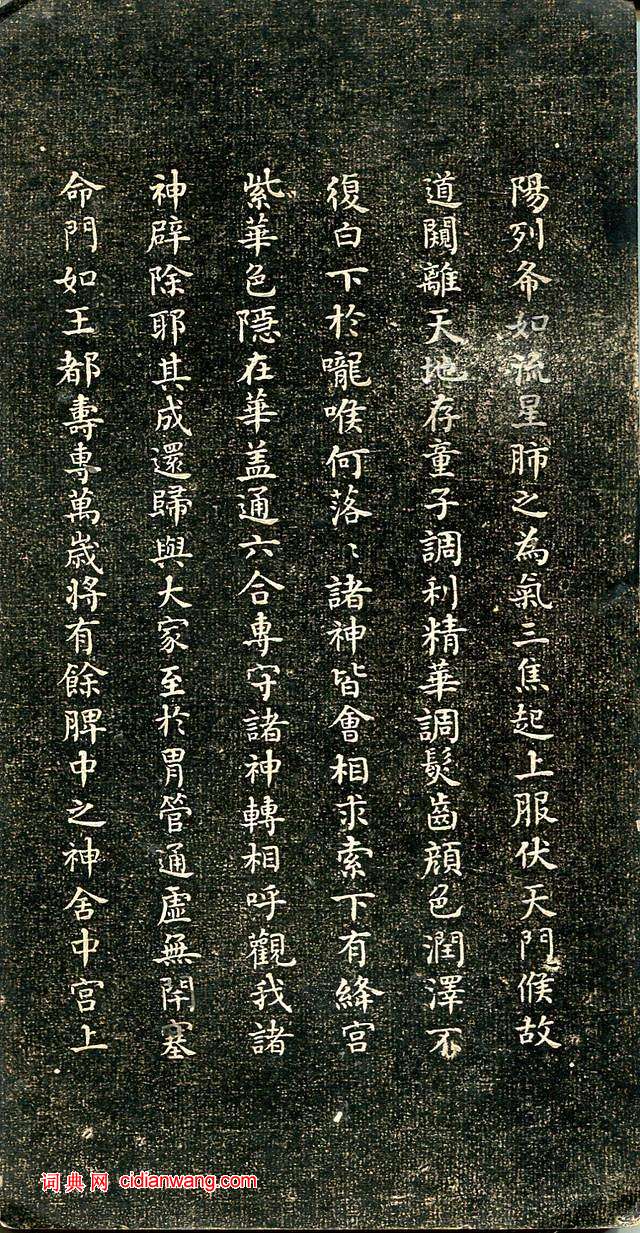 陽列布如流星肺之為氣三焦起上服伏天門候故
道闚離天地存童子調利精華調髮齒顏色潤澤不
復白下於嚨喉何落〻諸神皆會相求索下有絳宮
紫華色隱在華盖通六合專守諸神轉相呼觀我諸
神辟除耶其成還歸與大家至於胃管通虛無閉塞
命門如王都壽專萬歲將有餘脾中之神舍中宮上
词典网 cidianwang.com